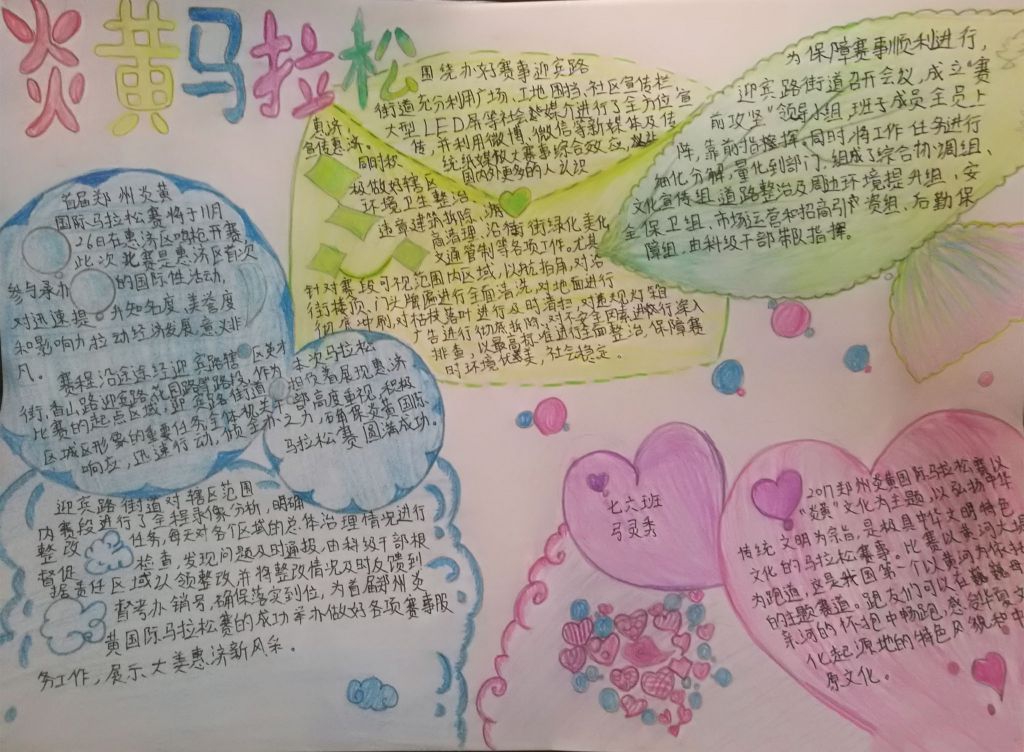 炎黄马拉松
首届郑州炎黄
国际马拉松赛将于11月
26日在惠济区鸣枪开赛
此次比赛是惠济区首次
参与承办的国际性活动,
对迅速提升知名度、美誉度
和影响力拉动经济发展意义非
凡。赛程沿途连经迎宾路辖区英才
街,香山路迎宾路花园路等路段,作为
比赛的起点区域,迎宾路街道
区域区形象的重要任务全体极关
响应,迅速行动,
本次马拉松
担负着展现惠济
部高度重视,积极
之力,确保炎黄国际
马拉松赛圆满成功。
迎宾路街道对辖区范围
内赛段进行了全程录像分析,明确
整改任务,每天对各区域的总体治理情况进行
督促检查,发现问题及时通报,由科级干部根
据责任区域以领整改,并将整改情况及时反馈到
督考办销号,确保落实到位,为首届郑州炎
黄国际马拉松赛的成功举办做好各项赛事服
务工作,展示大美惠济新风采。
围绕办好赛事迎宾路
街道充分利用广场、工地围挡、社区宣传栏
大型LED屏等社会媒介进行了全方位宣
传,并利用微博、微信等新媒体及传
统纸媒放大赛事综合效应,
国内外更多的人认识
真济、
宣传惠济。
同时积
极做好辖区
环境卫生整治、
违章建筑拆除、
高清理、沿街街绿化美化
交通管制等各项工作。尤其
针对赛段可视范围内区域,以航拍角,对沿
街楼顶、门头牌匾进行全面清洗,对地面进行
彻底冲刷,对枯枝落叶进行及时清扫,对违规对野目
广告进行彻底拆除、对不安全因素进行深入
排查,以最高标准进行全面整治,保障赛
时环境优美,社会稳定。
为保障赛事顺利进行,
迎宾路街道召开会议,成立“赛
前攻坚”领导小组,班子成员全员上
阵,靠前指挥,同时,将工作任务进行
细化分解,量化到部门,组成了综合协调组、
文化宣传组、道路整治及周边环境提升组、安
全保卫组、市场运营和招商引资组、后勤保
障组,由科级干部带队指挥。
七六班
弓灵类
2017郑州炎黄国际马拉松赛以
“炎黄”文化为主题,以弘扬中华
传统文明为宗旨,是极具中华文明特色
文化的马拉松赛事。比赛以黄河大堤
为跑道,这是我国第一个以黄河为依托
的主题赛道。跑友们可以在巍巍母
亲河的怀抱中畅跑,感受华夏文
化起源地的特色风貌和中
原文化。